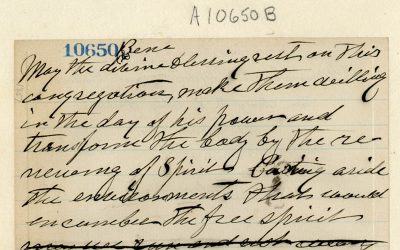 A10650B
10650 Bene
May the divine blessing rest on this
congregation, make them willing
in the day of his power and
transform the body by the re-
newing of Spirit. Casting aside
the environments that would
encumber the free spirit